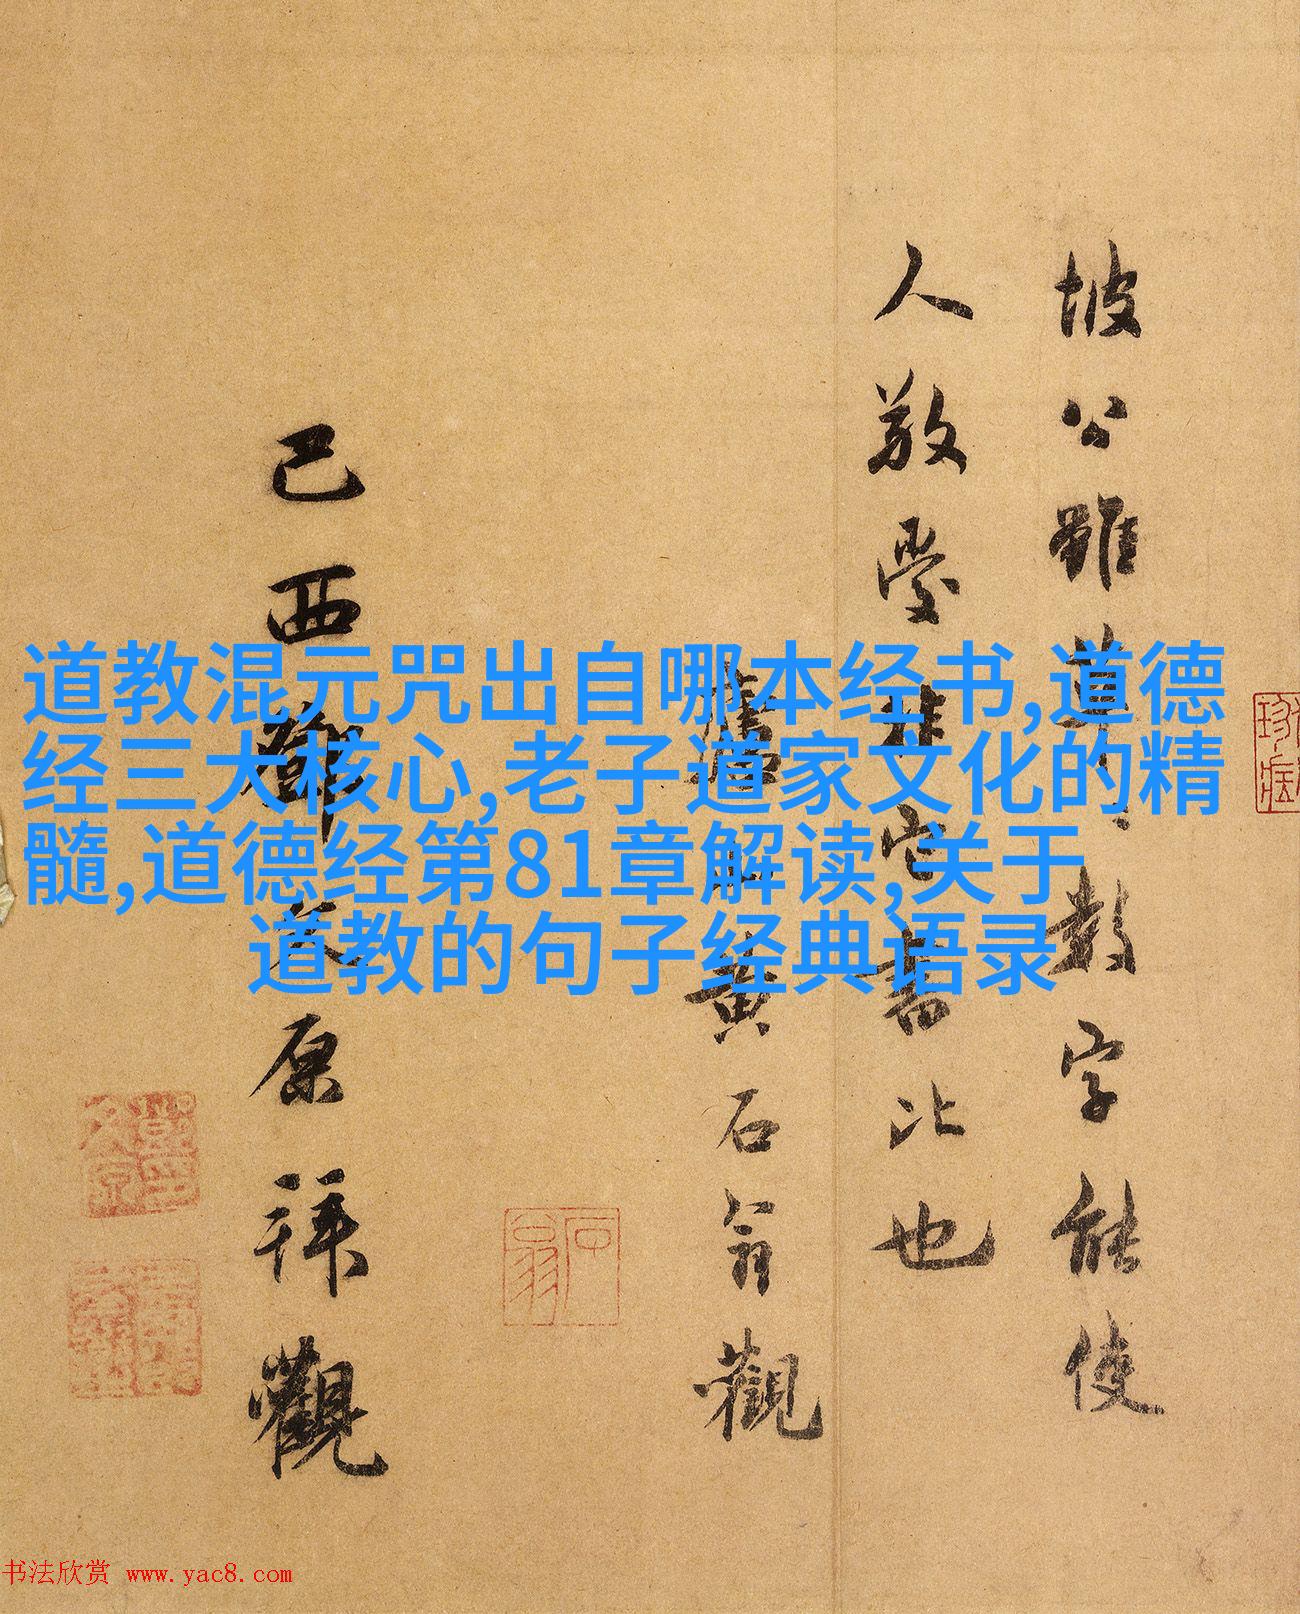 道教混元咒出自哪本经书,道德
经三大核心,老子道家文化的精
髓,道德经第81章解读,关于
道教的句子经典语录
坡公雖數字能使
人敬愛非它書比也
黃石翁觀
石翁
己酉鄧文原拜觀
书法欣赏 www.yac8.com